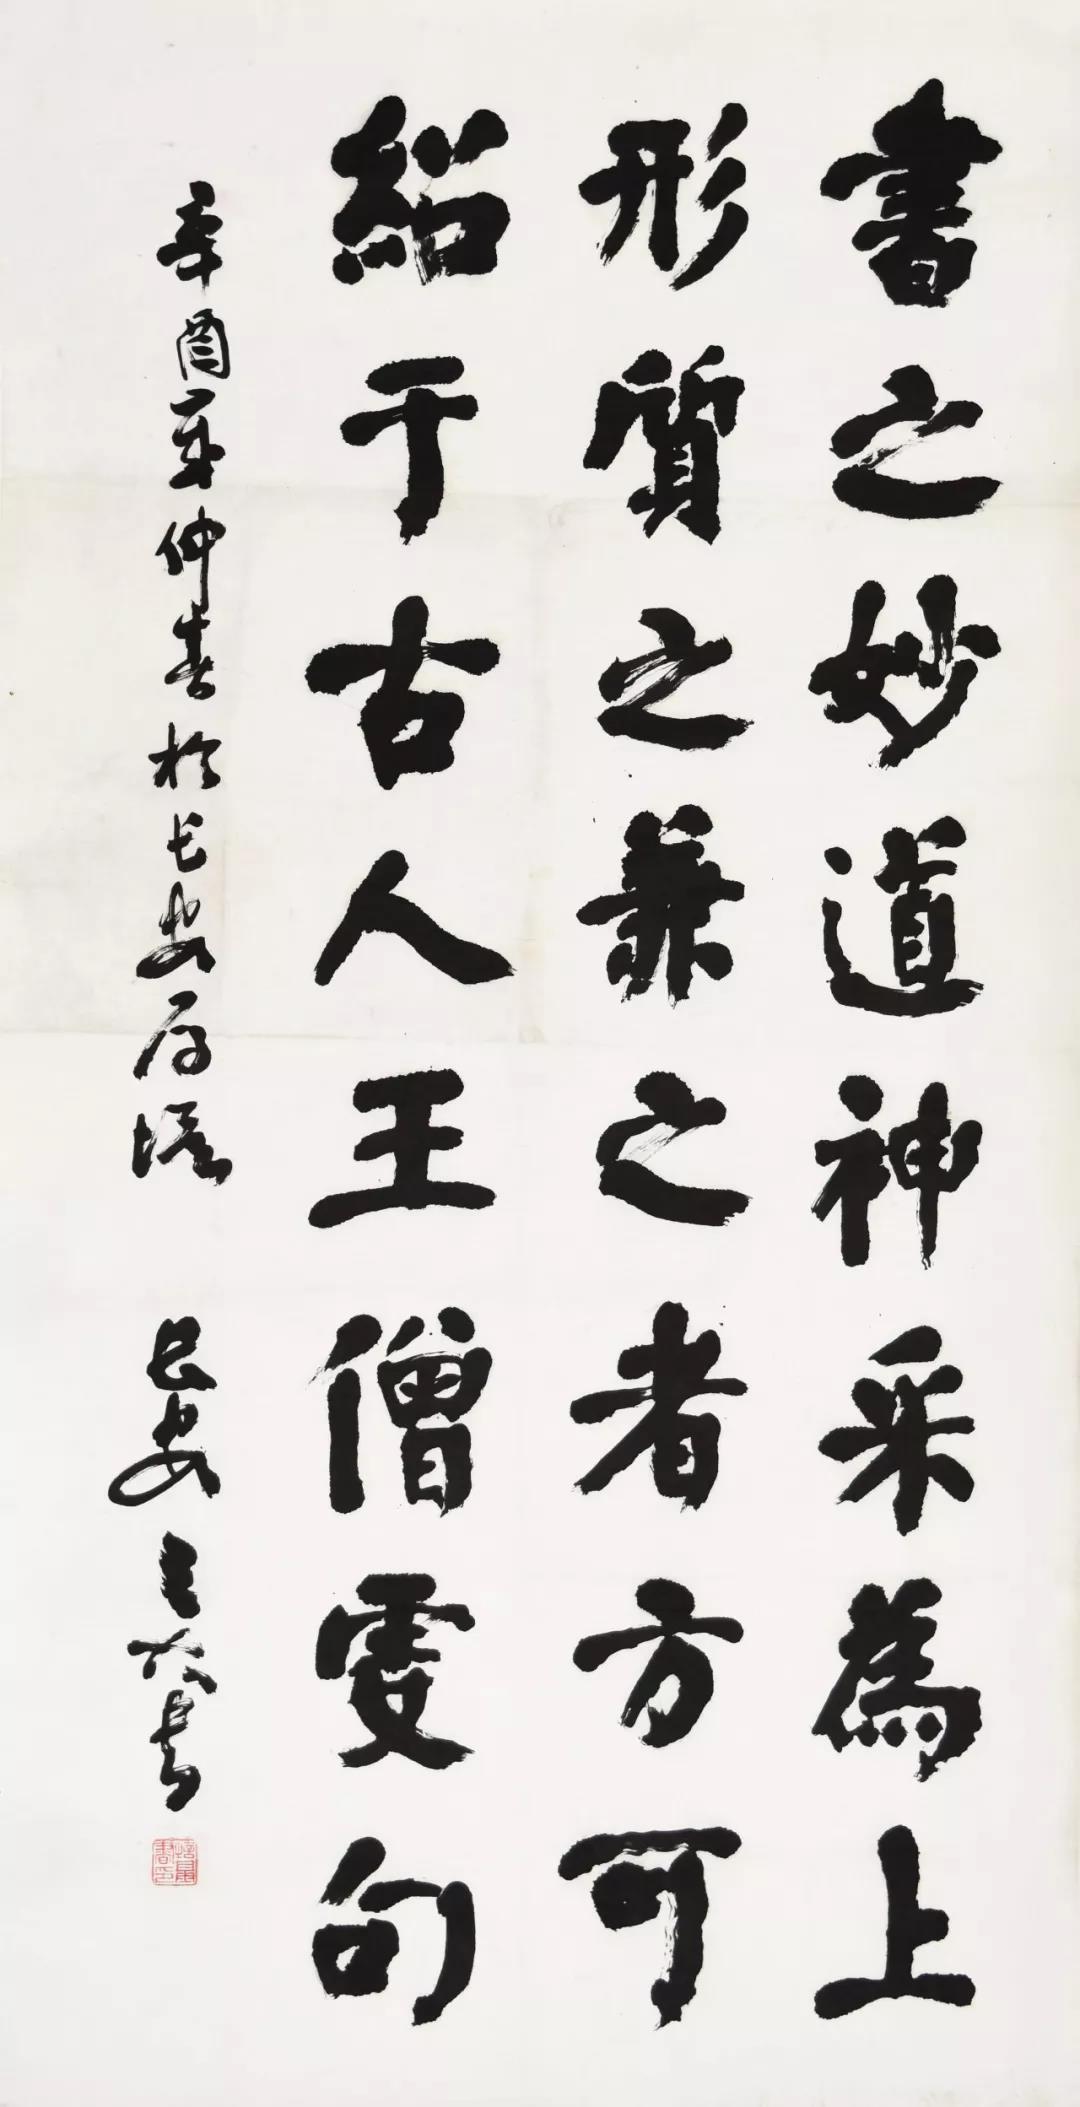 書之妙道神采為上
形質之兼之者方可
紹于古人王僧虔句
辛酉年仲春於長安
長安